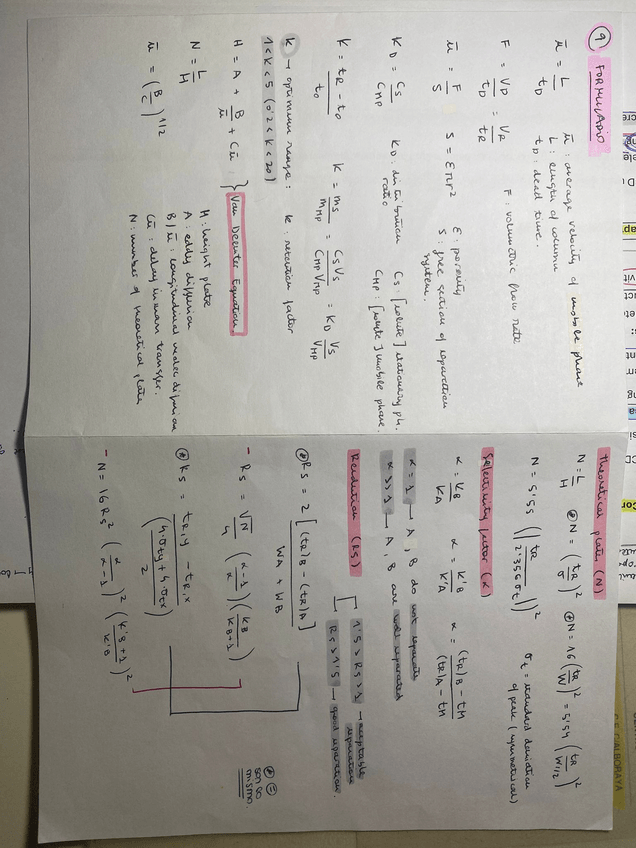 9 FORMULARIO
ū = L / tD
ū: average velocity of mobile phase
L: length of column
tD: dead time.
F = VD / tD = VR / tR
F: volumetric flow rate
ū = F / S
S = επr²
ε: porosity
S: free section of separation system.
KD = CS / CMP
KD: distribution ratio
CS: [solute] stationary ph.
CMP: [solute] mobile phase.
K = tR - t0 / t0
K = mS / mMP = CS VS / CMP VMP = KD VS / VMP
K → optimum range:
k: retention factor
1<K<5 (0'2<K<20)
H = A + B/ū + Cū } Van Deemter Equation
H: height plate
A: eddy diffusion
B/ū: longitudinal molec diffusion
Cū: delay in mass transfer.
N = L / H
N: number of theoretical plates
ū = (B/C)^1/2
Theoretical plates (N)
N = L / H
⊛ N = (tR / σ)²
⊛ N = 16 (tR / W)² = 5'54 (tR / W1/2)²
N = 5'55 (tR / 2'355 σt)²
σt = standard deviation of peak (symmetrical)
Selectivity factor (α)
α = KB / KA
α = K'B / K'A
α = (tR)B - tM / (tR)A - tM
α = 1 → A, B do not separate
α >> 1 → A, B are well separated
Resolution (RS)
1'5 > RS > 1 → acceptable separation
RS > 1'5 → good separation.
⊛ RS = 2 [(tR)B - (tR)A] / WA + WB
- RS = √N / 4 (α-1 / α) (KB / KB+1)
⊛ RS = tR,y - tR,x / (4·σty + 4·σtx / 2)
- N = 16 RS² (α / α-1)² (K'B+1 / K'B)²
⊛ = son lo mismo.
C.F. C/ALBORAYA